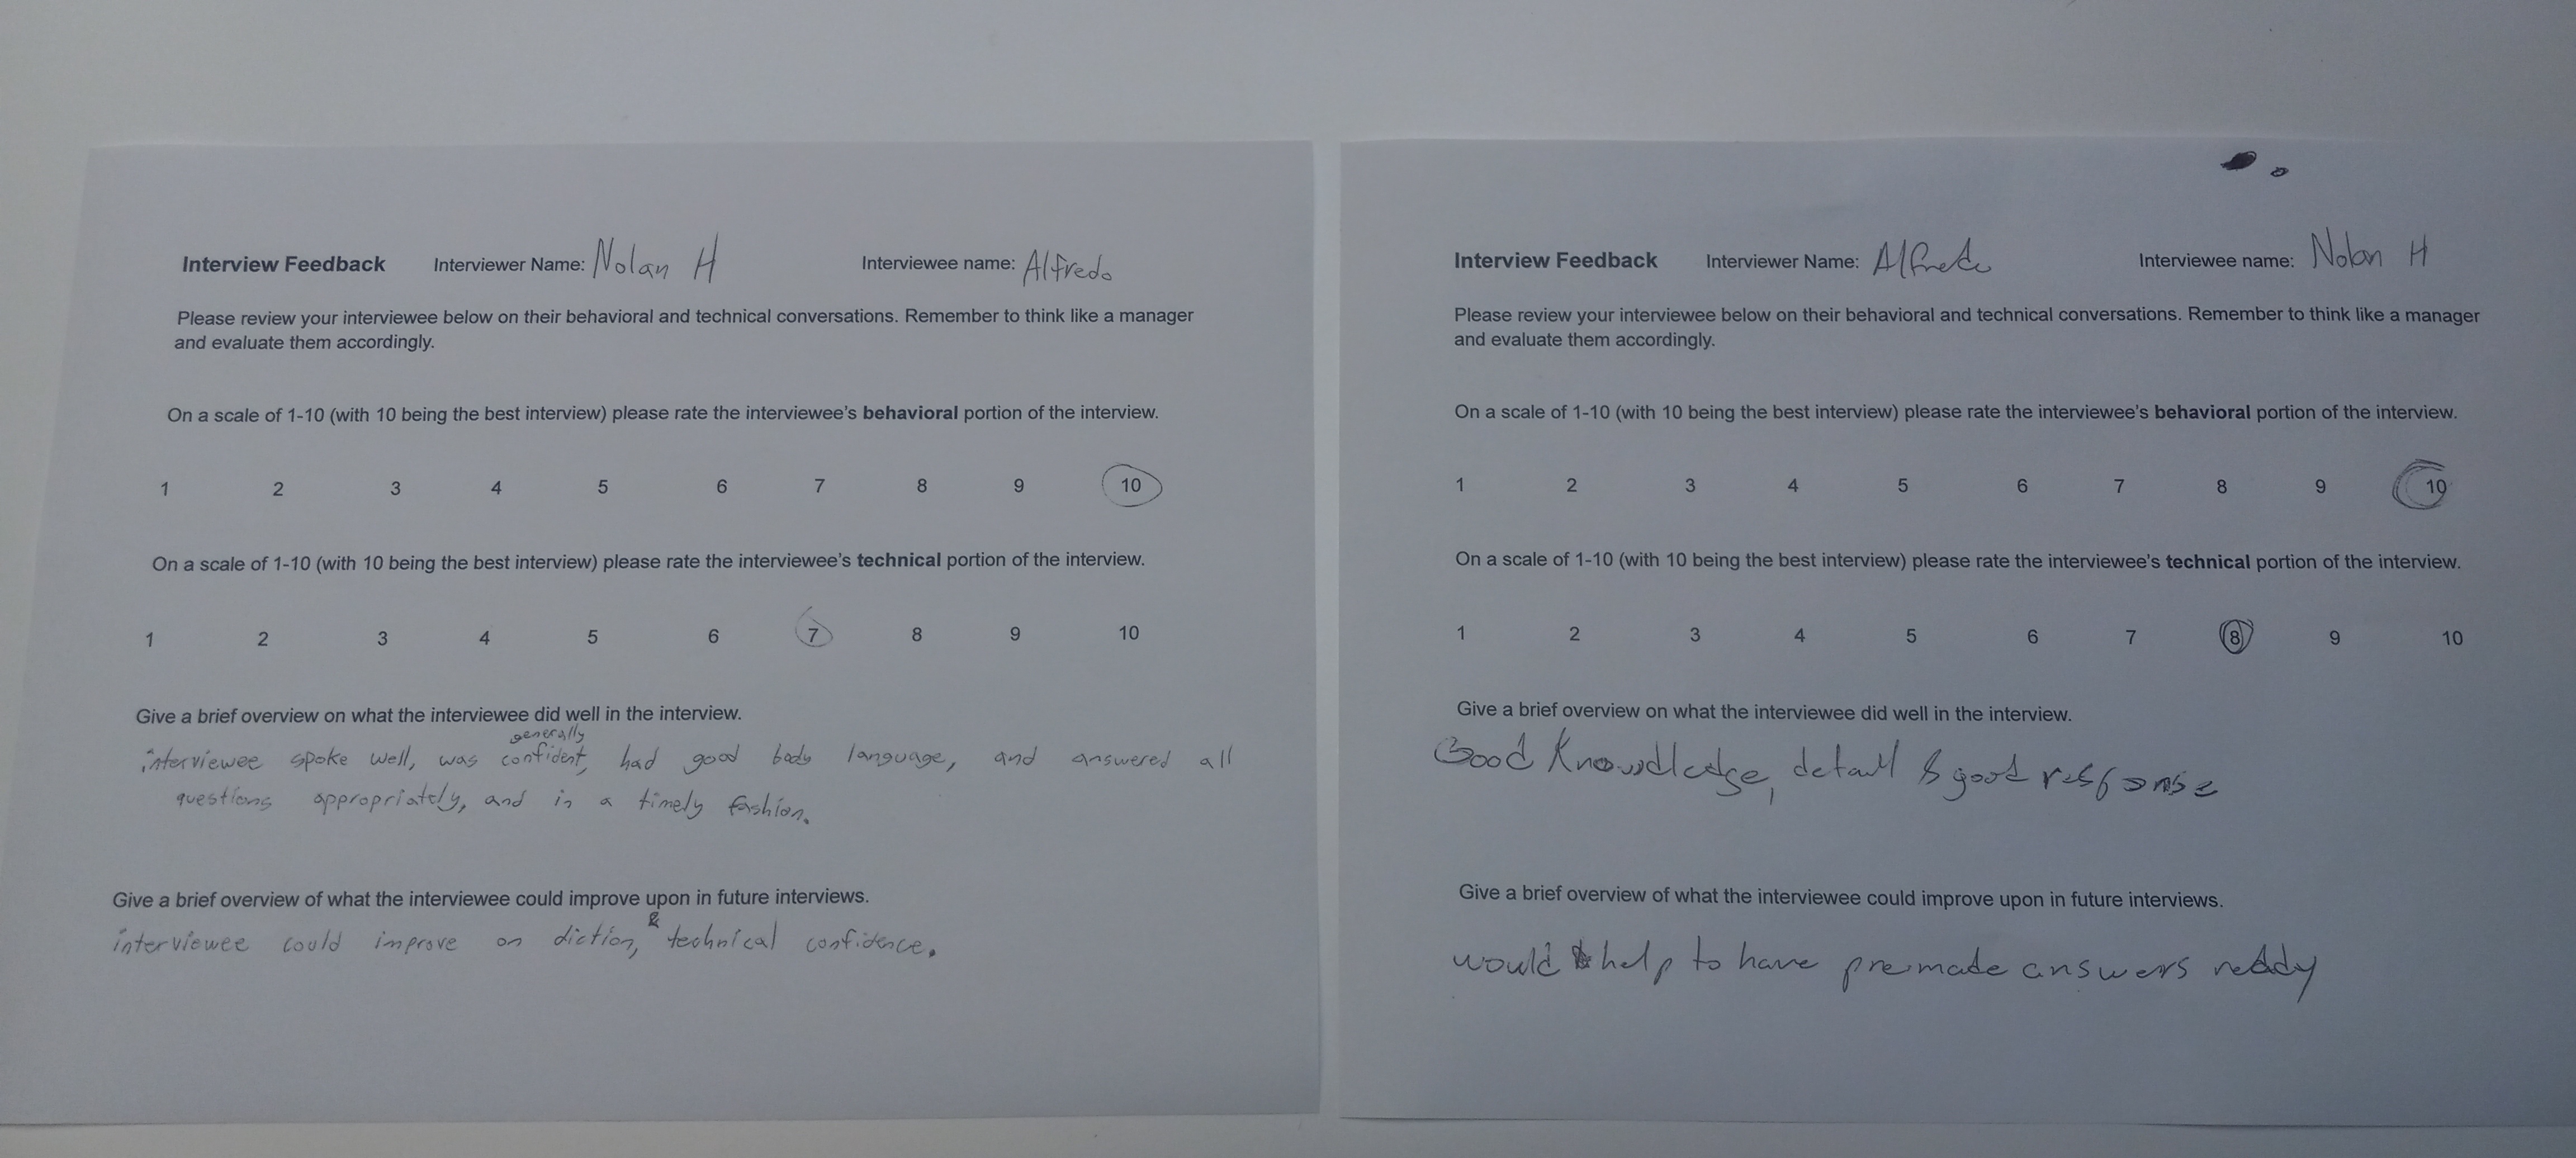 Interview Feedback Interviewer Name: Nolan H Interviewee name: Alfredo
Please review your interviewee below on their behavioral and technical conversations. Remember to think like a manager
and evaluate them accordingly.
On a scale of 1-10 (with 10 being the best interview) please rate the interviewee's behavioral portion of the interview.
1 2 3 4 5 6 7 8 9 10
On a scale of 1-10 (with 10 being the best interview) please rate the interviewee's technical portion of the interview.
1 2 3 4 5 6 7 8 9 10
Give a brief overview on what the interviewee did well in the interview.
generally
interviewee spoke well, was confident, had good body language, and answered all
questions appropriately, and in a timely fashion.
Give a brief overview of what the interviewee could improve upon in future interviews.
&
interviewee could improve on diction, technical confidence.
Interview Feedback Interviewer Name: Alfredo Interviewee name: Nolan H
Please review your interviewee below on their behavioral and technical conversations. Remember to think like a manager
and evaluate them accordingly.
On a scale of 1-10 (with 10 being the best interview) please rate the interviewee's behavioral portion of the interview.
1 2 3 4 5 6 7 8 9 10
On a scale of 1-10 (with 10 being the best interview) please rate the interviewee's technical portion of the interview.
1 2 3 4 5 6 7 8 9 10
Give a brief overview on what the interviewee did well in the interview.
Good Knowdledge, detail & good response
Give a brief overview of what the interviewee could improve upon in future interviews.
would help to have premade answers ready